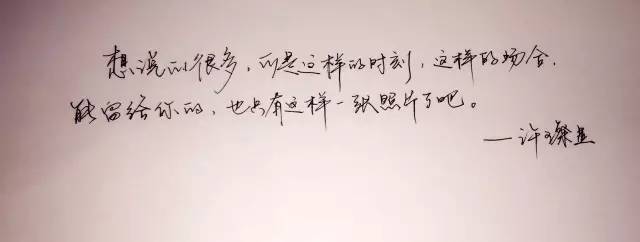 想说的很多，可是这样的时刻，这样的场合，
能留给你的，也只有这样一张照片了吧。
——许